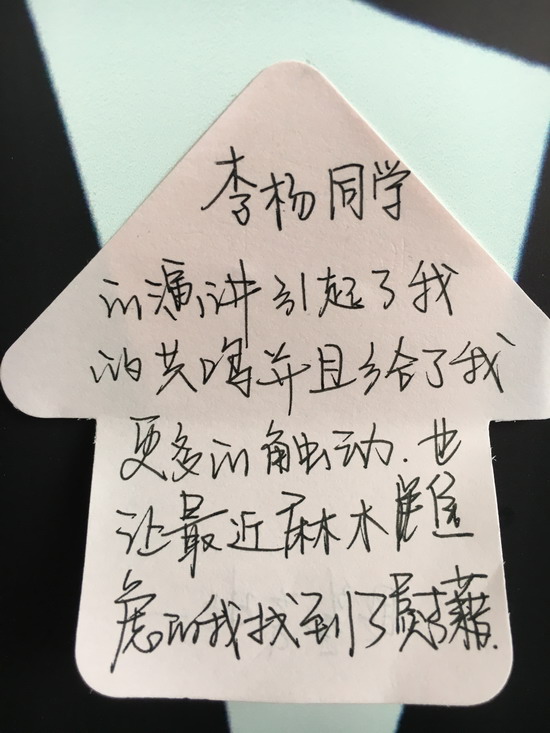 李杨同学
的演讲引起了我
的共鸣并且给了我
更多的触动.也
让最近麻木焦
虑的我找到了慰藉.